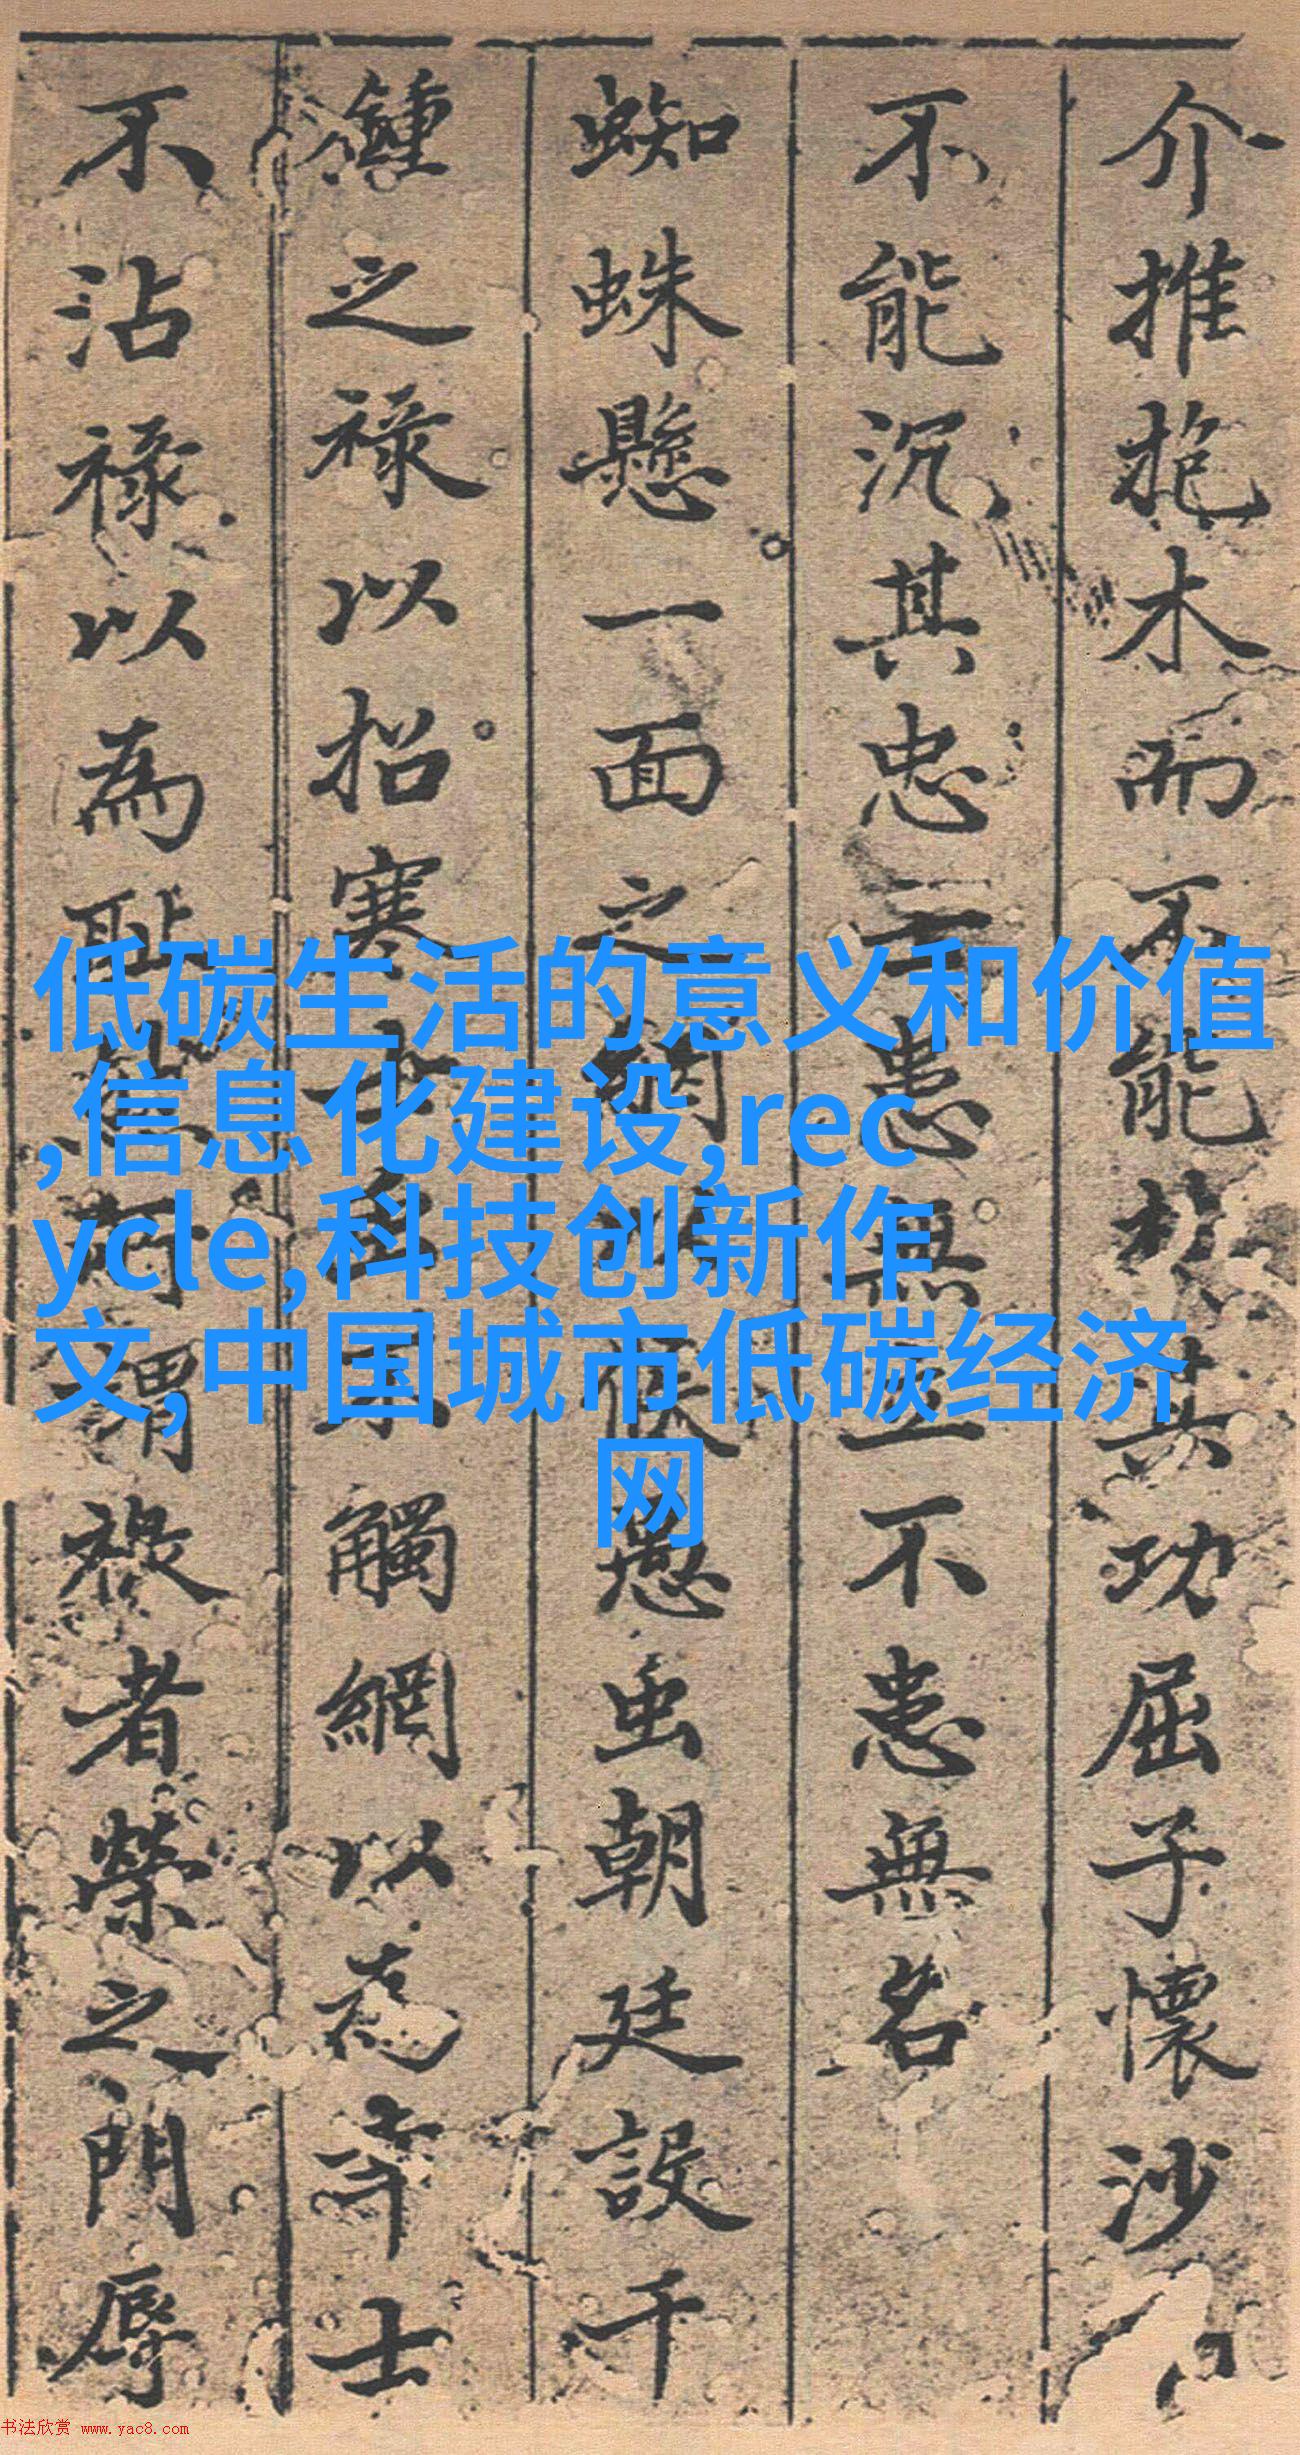 介推抱木而不能其功屈子懷沙
不能沉其忠士患無立不患無名
蜘蛛懸一面之網以候愚虫朝廷設千
鍾之祿以招寒士虫不觸網以為幸士
不沾祿以為耻何謂祿者榮之門辱
低碳生活的意义和价值
,信息化建设,rec
ycle,科技创新作
文,中国城市低碳经济
网
书法欣赏 www.yac8.com